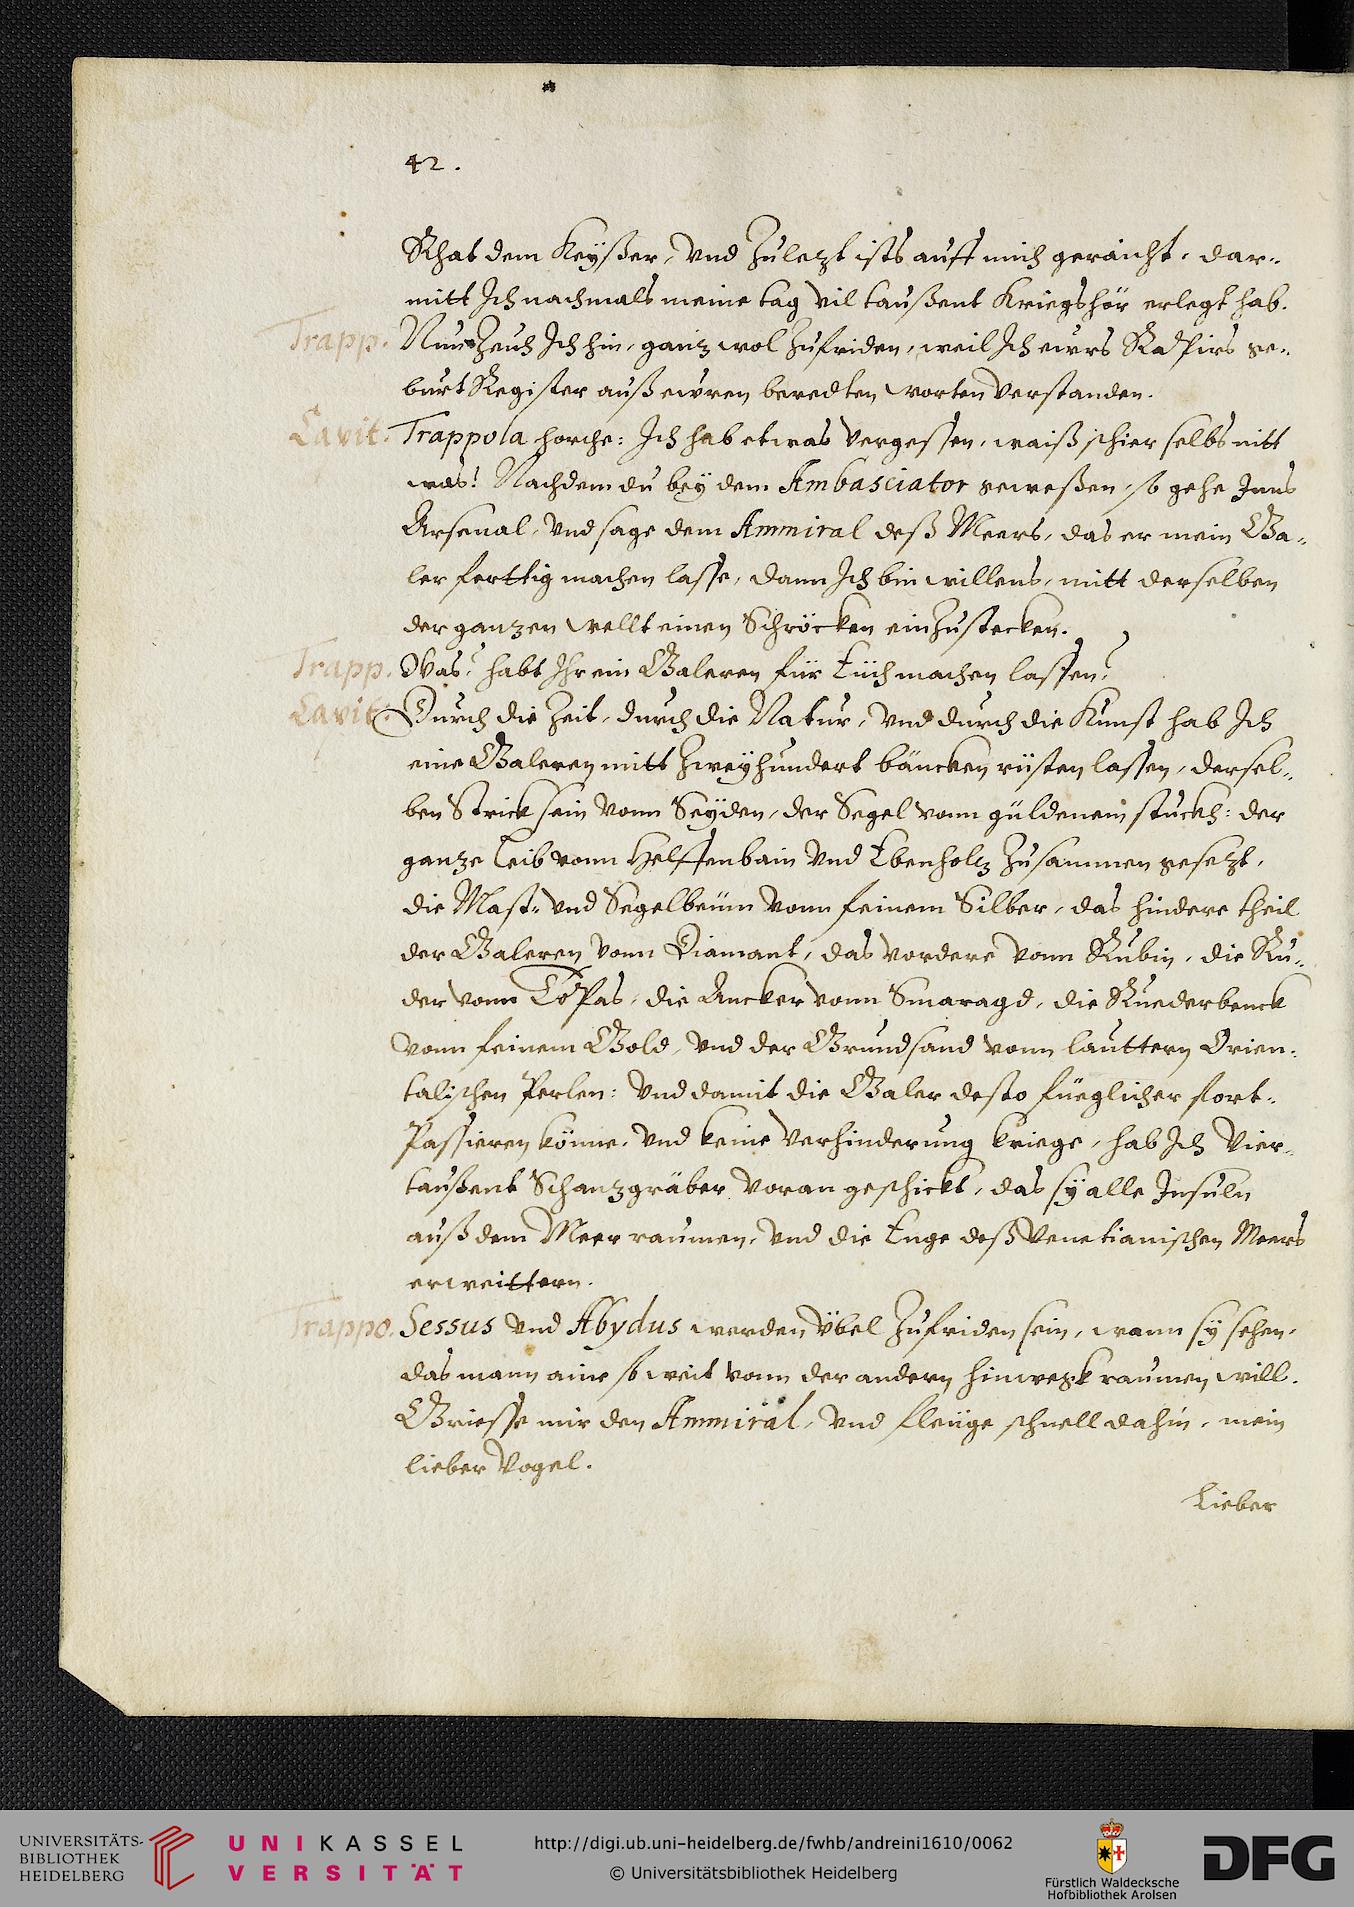 42.
Rhat dem Keyßer, Vnd Zuletzt ists auff mich geraicht, dar-
mitt Ich nachmals meine tag vil taußent Kriegshör erlegt hab.
Trapp. Nun Zeuch Ich hin, ganz wol Zufriden, weil Ich ewrs Rapirs ge-
burt Register auß ewren beredten worten Verstanden.
Capit. Trappola horche: Ich hab etwas Vergessen, waiß schier selbs nitt
was! Nachdem du bey dem Ambasciator geweßen, so gehe Inns
Arsenal, Vnd sage dem Ammiral deß Meers, das er mein Ga-
ler ferttig machen lasse, dann Ich bin willens, mitt derselben
der ganzen wellt einen Schröcken einZustecken.
Trapp. Was? habt Ihr ein Galeren für Euch machen lassen?
Capit. Durch die Zeit, durch die Natur, Vnd durch die Kunst hab Ich
eine Galeren mitt Zweyhundert bäncken rüsten lassen, dersel-
ben Strick sein Vonn Seyden, der Segel Vonn güldenem stuckh: der
ganze leib Vonn Helffenbain Vnd Ebenholz Zusammen gesetzt,
die Mast- Vnd Segelbeüm Vonn feinem Silber, das hindere theil
der Galeren Vonn Diamant, das Vordere Vonn Rubin, die Ru-
der Vonn Topas, die Ancker Vonn Smaragd, die Ruederbenck
Vonn feinem Gold, Vnd der Grundsand Vonn lauttern Orien-
talischen Perlen: Vnd damit die Galer desto füeglicher fort-
Passieren könne, Vnd keine Verhinderung kriege, hab Ich Vier-
taußent Schanzgräber Voran geschickt, das sy alle Insuln
auß dem Meer raumen, Vnd die Enge deß Venetianischen Meers
erweittern.
Trappo. Sessus Vnd Abydus werden Vbel Zufriden sein, wann sy sehen,
das mann aine so weit Vonn der andern hinwegk raumen will.
Griesse mir den Ammiral, Vnd fleüge schnell dahin, mein
lieber Vogel.
Lieber
UNIVERSITÄTS-
BIBLIOTHEK
HEIDELBERG
UNIKASSEL
VERSITÄT
http://digi.ub.uni-heidelberg.de/fwhb/andreini1610/0062
© Universitätsbibliothek Heidelberg
Fürstlich Waldecksche
Hofbibliothek Arolsen
DFG